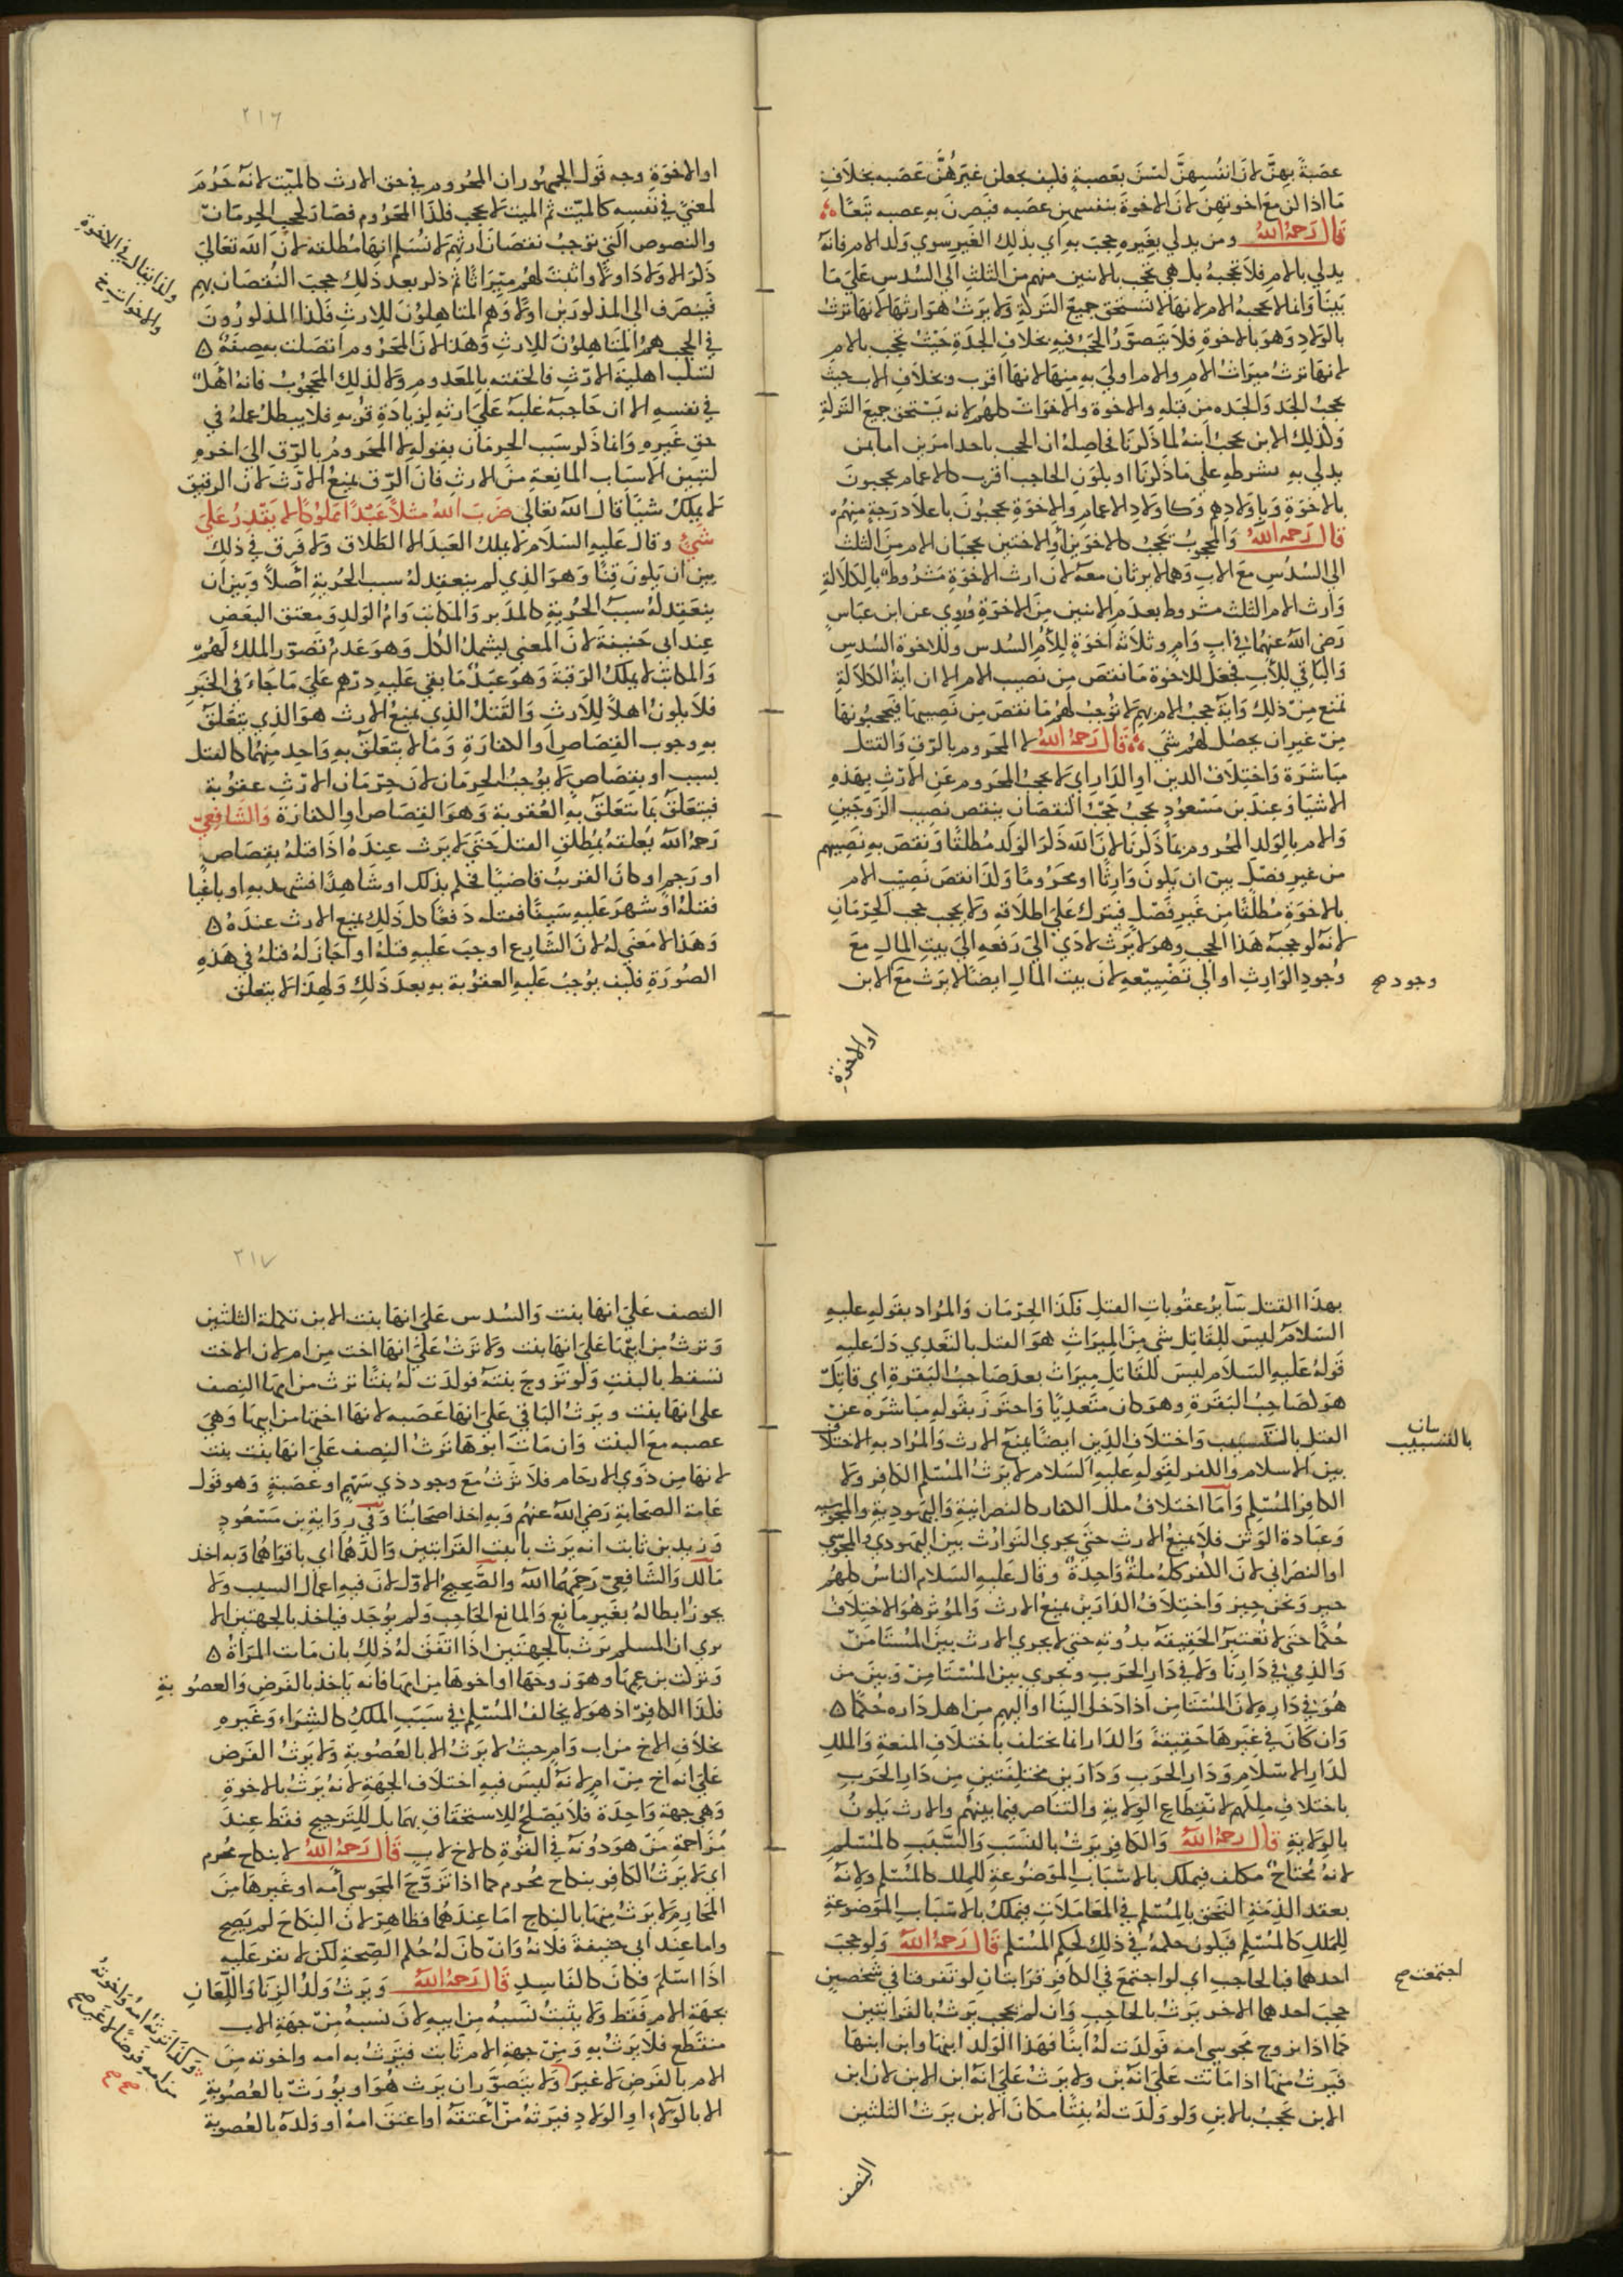 عصَبةً بهِنَّ لانَ انفُسِهنَّ لسْنَ بعَصبةٍ فليف يجعلن غيرَهُنَّ عَصَبه بخلافِ
مَا اذا لن معَ اخوتهنَّ لانَ الاخوةَ بنفسهم عصَبه فيَصِرنَ به عصبه تبَعًا
قال رَحمهُ اللهُ ومن يدلي بغيرهِ حجبَ به اي بذلك الغير سوي ولد الام فانهُ
يدلي بالام فلا تحجبهُ بل هي تحجب بالاثنين منهم من الثلثِ الي السُدس علي مَا
بَينَّا وانما لا تحجبهُ الام لانهَا لا تستحق جميع التركةِ ولا يَرثُ هوَ ارثهَا لانهَا ترثُ
بالوَلادِ وَهوَ بالاخوةِ فلا يتَصوَّرُ الحجبُ فيه بخلاف الجدّةِ حَيْثُ تحجب بالامِ
لانها ترثُ ميرَاثَ الامِ والام اوليَ به منها لانها اقرب وبخلافِ الاب حيث
يحجبُ الجدَ وَالجدّه من قبلهِ والاخوة والاخوَات كلهُم لانه يَستحق جميعَ التَركةِ
وَلذلِك الابن يحجبُ ابنهُ لما ذكرنَا فحاصلهُ ان الحجب باحد امرَين اما بمن
يدلي بهِ بشرطهِ علي مَا ذكرنَا او بلون الحاجب اقرب كالاعمام يحجبونَ
بالاخوَةِ وَباولادِهم وَكاولادِ الاعمامِ والاخوَةِ يحجبُونَ باعلا درَجةٍ منهُم
قال رَحمهُ اللهُ وَالمحجوبُ يحجبُ كالاخوَين اوِ الاختين يحجبَان الام منَ الثلث
الي السُدُسِ معَ الابِ وَهما لا يرثان معهُ لانَ ارثَ الاخوَةِ مَشرُوط بالِكلالةِ
وَارث الام الثلث مشروط بعدَمِ الاثنين منَ الاخوَةِ وَرُوي عن ابن عبَاسٍ
رَضي اللهُ عنهُما في ابٍ وَامٍ وثلاثه اخوَةٍ للِاُم السُدس وللاخوة السُدس
وَالبَاقي للِأب فجعَل للاخوةِ مَا نقصَ مِن نصيب الام الا ان ايةَ الكلالةِ
تمنع مِنْ ذلِك وَايةَ حجبُ الام بهِم لا توجبُ لهُم مَا نقصَ مِن نَصيبهَا فيَحجبُونهَا
مِنْ غيرِ ان يحصُل لهُم شي قال رَحمهُ اللهُ لا المحرَوم بالرّقِ وَالقتل
مبَاشرَة وَاختِلاف الدين اوِ الدَارِ اي لا يحجبُ المحرَوم عن الارْثِ بهَذهِ
الاشيَاءِ وَعندَ بن مَسعُودٍ يحجبُ حجبَ النقصَانِ ينقص نَصيب الزوجَينِ
وَالام بالوَلد المحرُوم بمَا ذكرنَا لانَ اللهَ ذكرَ الوَلد مُطلقًا وَنقصَ به نَصِيبهم
من غيرِ فصَلٍ بين ان يكونَ وَارثًا او محرُومًا وَلذا نقصَ نَصِيْب الامِ
بالاخوَةِ مُطلقًا مِن غَيرِ فَصْلٍ فيترك عَليَ اطلاقهِ ولا يحجب حجب الحِرْمَانِ
لانهُ لو حجبهُ هَذَا الحجب وهوَ لا يَرث لادّي الي دَفعهِ الي بيتِ المالِ معَ
وُجودِ الوَارِثِ او الي تَضْيِيْعهِ لانَ بيت المالِ ايضًا لا يرَث معَ الابن
وجود صح
او الاخوَةِ
٢١٦
او الاخوَةِ وجه قَول الجمهُور ان المحرُوم في حق الارث كالميّت لانهُ حُرُمَ
لمعنيً في نفسه كالميّت ثم الميت لا يحجب فلذا المحَرُوم فصَار لحجب الحِرمَان
والنصوص التي توجبُ نقصَان ارثِهم لا نُسَلم انهَا مُطلقهُ لانَ اللهَ تعَالي
ذكرَ الاولادَ اولًا واثبتَ لهُم ميرَاثًا ثم ذكر بعد ذلك حجبَ النُقصَان بهم
فيَنصَرف الي المذكورَين اولًا وَهم المتأهلوُنَ للِارثِ فلذا المذكورُونَ
في الحجب هم المتاهِلوُن للِارثِ وَهذا لانَ المحَرُوم اتصَلت به صِفةٌ
تسلُب اهلية الارْثِ فالحقته بالمعَدوم ولا لذلِك المحجُوبُ فانهُ اهْلٌ
في نفسهِ الا ان حَاجبهُ غلبهُ عَليَ ارثهِ لزيادَةِ قرُبهِ فلا يبطل عملهُ في
حقِ غَيرِهِ وَانما ذكر سَبب الحرمَان بقولهِ لا المحَرومُ بالرِّقِ الي اخرهِ
لتبين الاسبَاب المانِعةِ منَ الارثِ فانَ الرِّق يمنعُ الارْث لانَ الرقيقَ
لا يملِكُ شيئًا قال الله تعَالي ضَربَ اللهُ مثلاً عَبْدًا مملوكًا لا يَقدِرُ علَيَ
شيْءٍ وقال عَليهِ السَلام لا يملكُ العَبدُ الا الطَلاقَ ولا فَرق في ذلك
بين ان يَلونَ قِنًّا وَهوَ الذي لم ينعقد لهُ سبب الحُريةِ اصْلاً وَبينَ ان
ينعَقِد لهُ سببُ الحُريةِ كالمدَبر وَالمكاتب وَامُ الوَلدِ وَمعتق البعَض
عِند ابي حَنيفةَ لانَ المعني ليشملُ الكل وَهوَ عَدمُ تَصوّر الملك لهُمْ
وَالمكاتبُ لا يملِكُ الرَقبَةَ وَهوَ عَبدٌ مَا بقي عَليهِ دِرْهم عَليَ مَا جَاءَ في الخبَرِ
فلا يلونُ اهلاً للاِرثِ وَالقتلُ الذِي يمنعُ الارث هوَ الذِي يتعَلقُ
بهِ وجوب القِصَاصِ اوِ الكفارَةِ وَمَا لا يتعَلقُ بهِ وَاحدٍ منهُما كالقتل
بسبب او بقِصَاصٍ لا يُوجبُ الحِرمَان لانَ حِرْمَان الارْثِ عقوُبة
فيتعَلقُ بمَا يتَعَلقُ بهِ العُقوبة وَهوَ القِصَاص اوِ الكفارَة وَالشَافِعيّ
رَحمهُ اللهُ يعُلقهُ بمُطلقِ القتل حَتي لا يَرَث عِندَهُ اذا قتلهُ بقِصَاصٍ
او رَجمٍ او كانَ القريبُ قاضيًا فحكم بذلك او شَاهِدًا فشهد به او باغيًا
فقتلهُ او شهرَ عليهِ سَيفًا فقتله دَفعًا كل ذلِك يمنع الارث عندَهُ
وَهَذا لا مَعني لهُ لانَ الشَارِعَ اوجبَ عَليهِ قتلهُ او اجَازَ لهُ قتلهُ في هَذهِ
الصُورَةِ فليف يُوجبُ عَليهِ العقوُبة به بعدَ ذلِك وَلهذا لا يتعلق
ولفا يقال في الاخوة
والاخوات خ
بهذَا القتل سَآئرُ عقوُباتِ القتلِ فلذَا الحِرْمَان وَالمُرَاد بقولهِ عليهِ
السَلام ليسَ للِقاتِلِ شي منَ المِيرَاثِ هوَ القتل بالتعَدِي دَل عَليهِ
قَولهُ عَليهِ السَلام ليسَ للقاتلِ ميرَاثٌ بعدَ صَاحبُ البَقرةِ اي قاتِلٌ
هوَ لصَاحِبُ البَقرَةِ وهوَ كان متعَدِيًا وَاحترزَ بقوله مبَاشرَه عَنْ
القتل بالتسبيب وَاختلاف الدِين ايضًا يمنعُ الارث وَالمُرَاد به الاختلاف
بين الاسلام وَالكفر لقولهِ عليهِ السَلام لا يَرثُ المُسْلم الكافِر وَلا
الكافر المُسْلِم وَأمَا اختلافُ ملل الكفار كالنصرانيةِ وَاليَهُوديةِ والمجوسيه
وَعبَادة الوَثنِ فلا يمنعُ الارث حتيَ يجري التوارُثُ بينَ اليَهودي وَالمجوسي
او النصرَاني لانَ الكفر كلهُ ملةٌ وَاحِدَةٌ وقال عَليهِ السَلام الناسُ كلهُم
حيز وَنحن حيز وَاختِلاف الدَارَين يمنعُ الارث وَالمُوثر هوَ الاختِلاف
حُكمًا حَتيَ لا تعُتبرُ الحَقيقهُ بدُونهِ حتي لا يجري الارث بينَ المُستَامَن
وَالذِميْ في دَارنَا وَلا في دَار الحَرب ويجري بين المُستَامن وَبينَ من
هُوَ في دَارِهِ لانَ المُسْتَامَن اذا دَخلَ الينَا او اليهم مِن اهل دَاره حُكمًا
وَان كَانَ في غيرهَا حَقيقةً وَالدَار انما تختلف باختلافِ المنعةِ وَالملكِ
لدَارِ الاسْلامِ وَدَارِ الحرَب وَدَارَينِ مختلِفتَينِ مِن دَارِ الحَربِ
باختلافِ ملكهِم لانقطاعِ الوِلايةِ وَالتناصرِ فيما بينهُم وَالارث يَلونُ
بالوِلايةِ قال رَحمهُ اللهُ وَالكافر يَرثُ بالنسَبِ وَالسَّبَبِ كالمُسْلمِ
لانهُ مُحتاجٌ مكلف فيملك بالاسْبَابِ الموَضُوعةِ للمِلك كالمُسْلم وَلانهُ
بعقدِ الذِمّةِ التَحق بالمُسْلم في المعَامَلاتِ فيملكُ بالاسْبَابِ الموَضوعةِ
للِملكِ كالمُسْلم فيلون حكمهُ في ذلِك لحكِم المُسْلم قال رَحمهُ اللهُ وَلو حجبَ
احدهما فبالحاجبِ اي لو اجتمعَ في الكافِر قرَابتانِ لو تفرقتا في شخصينِ
حجبَ احدهما الاخر يرَثُ بالحَاجِبِ وَان لم يحجب يرَثُ بالقرابتين
كما اذا تزوج مجوسي امه فولدت لهُ ابنًا فهَذا الوَلد ابنهَا وابن ابنهَا
فيَرثُ منهَا اذا مَاتت عَليَ انهُ بن ولا يرَثُ عَليَ انهُ ابن الابن لان ابن
الابن يحجبُ بالابنِ وَلو وَلدَت لهُ بنتًا مكانَ الابن يَرثُ الثلثين
بيان
بالتسبيب
اجتمعت صح
النصف
٢١٧
النصف عَليَ انهَا بنت وَالسُدس عَليَ انهَا بنت الابن تكملة الثلثين
وَترثُ من ابيْهَا عَليَ انهَا بنت ولا ترَثُ عَليَ انهَا اخت من ام لانَ الاخت
تسقط بالبنتِ وَلو تزَوجَ بنتهُ فولدَت لهُ بنتًا ترث من امهَا النِصف
علي انهَا بنت ويرثُ البَاقي عَليَ انهَا عَصَبه لانهَا اختها من ابيهَا وَهيَ
عصبه معَ البنت وَان مَاتَ ابوهَا ترَثُ النِصف عَليَ انهَا بنت بنت
لانهَا مِن ذوَي الارحَام فلا ترَثُ معَ وجود ذي سَهمٍ او عَصَبةٍ وَهو قوَل
عَامة الصحَابةِ رَضي اللهُ عنهُم وَبهِ اخذ اصحَابُنَا وَفي رِوَايةِ بن مَسْعُودٍ
وَزيد بن ثابت انهُ يرَث باثبت القرَابتين وَآلدهمُا اي باقواهُما وَبهِ اخذ
مَالك وَالشَافِعيّ رَحمَهُما اللهُ وَالصَحيحُ الاوَّل لانَ فيهِ اعمال السبب وَلا
يجوز ابطالهُ بغَير مَانع وَالمانع الحاجب وَلم يُوجَد فيَاخذ بالجهتين الا
يري ان المسلم يَرث بالجهتَين اذا اتفقَ لهُ ذلِك بان مَات المرَاةُ
وَترَكت بن عمهَا وهوَ زوجهَا او اخوهَا من امهَا فانه يَاخذ بالفَرض وَالعصُوبةِ
فلذا الكافر اذ هوَ لا يخالف المُسْلِم في سَببَ الملك كالشِراءِ وَغَيرهِ
بخلافِ الاخ من اب وَامٍ حيثُ لا يرَثُ الا بالعُصُوبةِ وَلا يَرثُ الفَرض
عَليَ انه اخ مِنْ امٍ لانهُ ليسَ فيهِ اختلاف الجِهةِ لانهُ يَرَثُ بالاخوةِ
وَهيَ جهةٍ وَاحِدَة فلا يَصْلحُ للِاستحقاقِ بهمَا بل للترجيح فقط عِندَ
مُزَاحَمةِ مَنْ هوَ دُونهُ في القوُةِ كالاخ لابٍ قال رَحمهُ اللهُ لا بنكاح محُرم
اي لا يرَثُ الكافر بنكاح محرم كما اذا تزوَّجَ المجوسي أمه او غَيرهَا منَ
المحَارمِ لا يرَثُ منِهَا بالنِكاح امَا عِندَهُما فظاهِرٌ لانَ النِكاحَ لم يَصِح
واما عِند ابي حنيفةَ فلانهُ وَانْ كانَ لهُ حُكم الصِحةِ لكن لا يقر عَليهِ
اذا اسْلمَ فكان كالفَاسِدِ قال رَحمهُ اللهُ وَيرَثُ وَلدُ الزِنَا وَاللعَانِ
بجهَةِ الامِ فقط ولا يثبَتُ نَسَبهُ من ابيهِ لانَ نسبهُ مِنْ جهَةِ الابِ
منقطع فلا يَرثُ بهِ وَمِنْ جهةِ الام ثابت فيَرثُ به امه واخوته منَ
الام بالفَرضِ لا غيرَ وَلا يتصَوَّر ان يَرث هُوَ او يوُرَثْ بالعُصُوبةِ
الا بالوَلاءِ او الولادِ فيرَثهُ مَنْ أعتقهُ او اعتق امهُ او وَلدهُ بالعُصوبةِ
وكذا ترثهُ امهُ واخوتهُ
من امهِ فرضًا لا غير صح
صح